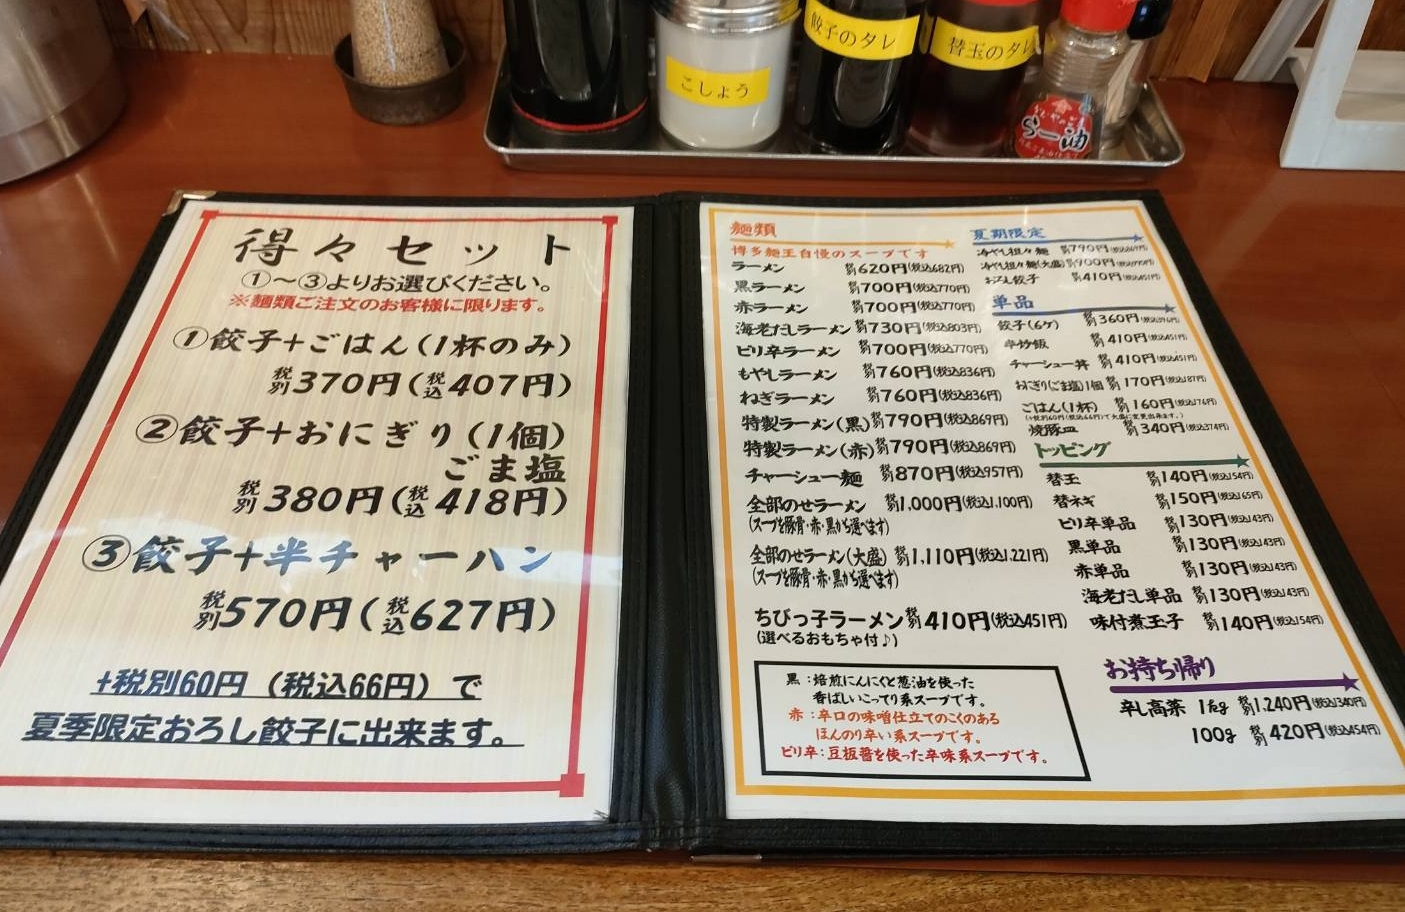 こしょう
餃子のタレ
替玉のタレ
らー油
得々セット
①～③よりお選びください。
※麺類ご注文のお客様に限ります。
①餃子+ごはん(1杯のみ)
税別370円(税込407円)
②餃子+おにぎり(1個)
ごま塩
税別380円(税込418円)
③餃子+半チャーハン
税別570円(税込627円)
+税別60円(税込66円)で
夏季限定おろし餃子に出来ます。
麺類
博多麺王自慢のスープです
ラーメン 税別620円(税込682円)
黒ラーメン 税別700円(税込770円)
赤ラーメン 税別700円(税込770円)
海老だしラーメン 税別730円(税込803円)
ピリ辛ラーメン 税別700円(税込770円)
もやしラーメン 税別760円(税込836円)
ねぎラーメン 税別760円(税込836円)
特製ラーメン(黒) 税別790円(税込869円)
特製ラーメン(赤) 税別790円(税込869円)
チャーシュー麺 税別870円(税込957円)
全部のせラーメン 税別1,000円(税込1,100円)
(スープを豚骨・赤・黒から選べます)
全部のせラーメン(大盛) 税別1,110円(税込1,221円)
(スープを豚骨・赤・黒から選べます)
ちびっ子ラーメン 税別410円(税込451円)
(選べるおもちゃ付♪)
黒:焙煎にんにくと葱油を使った
香ばしいこってり系スープです。
赤:辛口の味噌仕立てのこくのある
ほんのり辛い系スープです。
ピリ辛:豆板醤を使った辛味系スープです。
夏期限定
冷やし担々麺 税別790円(税込869円)
冷やし担々麺(大盛) 税別900円(税込990円)
おろし餃子 税別410円(税込451円)
単品
餃子(6ケ) 税別360円(税込396円)
半炒飯 税別410円(税込451円)
チャーシュー丼 税別410円(税込451円)
おにぎり(ごま塩)1個 税別170円(税込187円)
ごはん(1杯) 税別160円(税込176円)
(+税別60円(税込66円)で大盛に変更出来ます。)
焼豚皿 税別340円(税込374円)
トッピング
替玉 税別140円(税込154円)
替ネギ 税別150円(税込165円)
ピリ辛単品 税別130円(税込143円)
黒単品 税別130円(税込143円)
赤単品 税別130円(税込143円)
海老だし単品 税別130円(税込143円)
味付煮玉子 税別140円(税込154円)
お持ち帰り
辛し高菜 1kg 税別1,240円(税込1,340円)
100g 税別420円(税込454円)